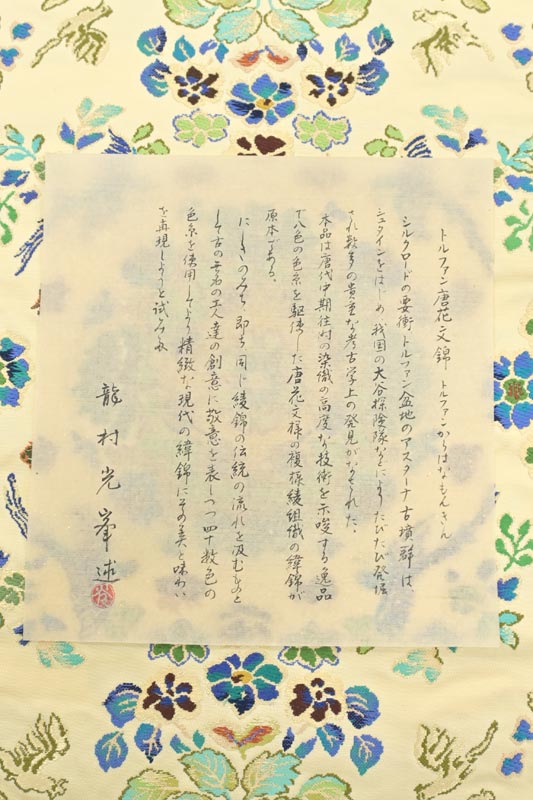 トルファン唐花文錦 トルファンからはなもんきん
シルクロードの要衝トルファン盆地のアスターナ古墳群は
シュタインをはじめ我国の大谷探険隊などによりたびたび発掘
され数多の貴重な考古学上の発見がなされた。
本品は唐代中期往時の染織の高度な技術を示唆する逸品
で八色の色糸を駆使した唐花文様の複様綾組織の緯錦が
原本である。
にしきのみち 即ち同じ綾錦の伝統の流れを汲むものと
して古の無名の工人達の創意に敬意を表しつつ四十数色の
色糸を使用してより精緻な現代の緯錦にその美と味わい
を再現しようと試みた
龍村光峯述